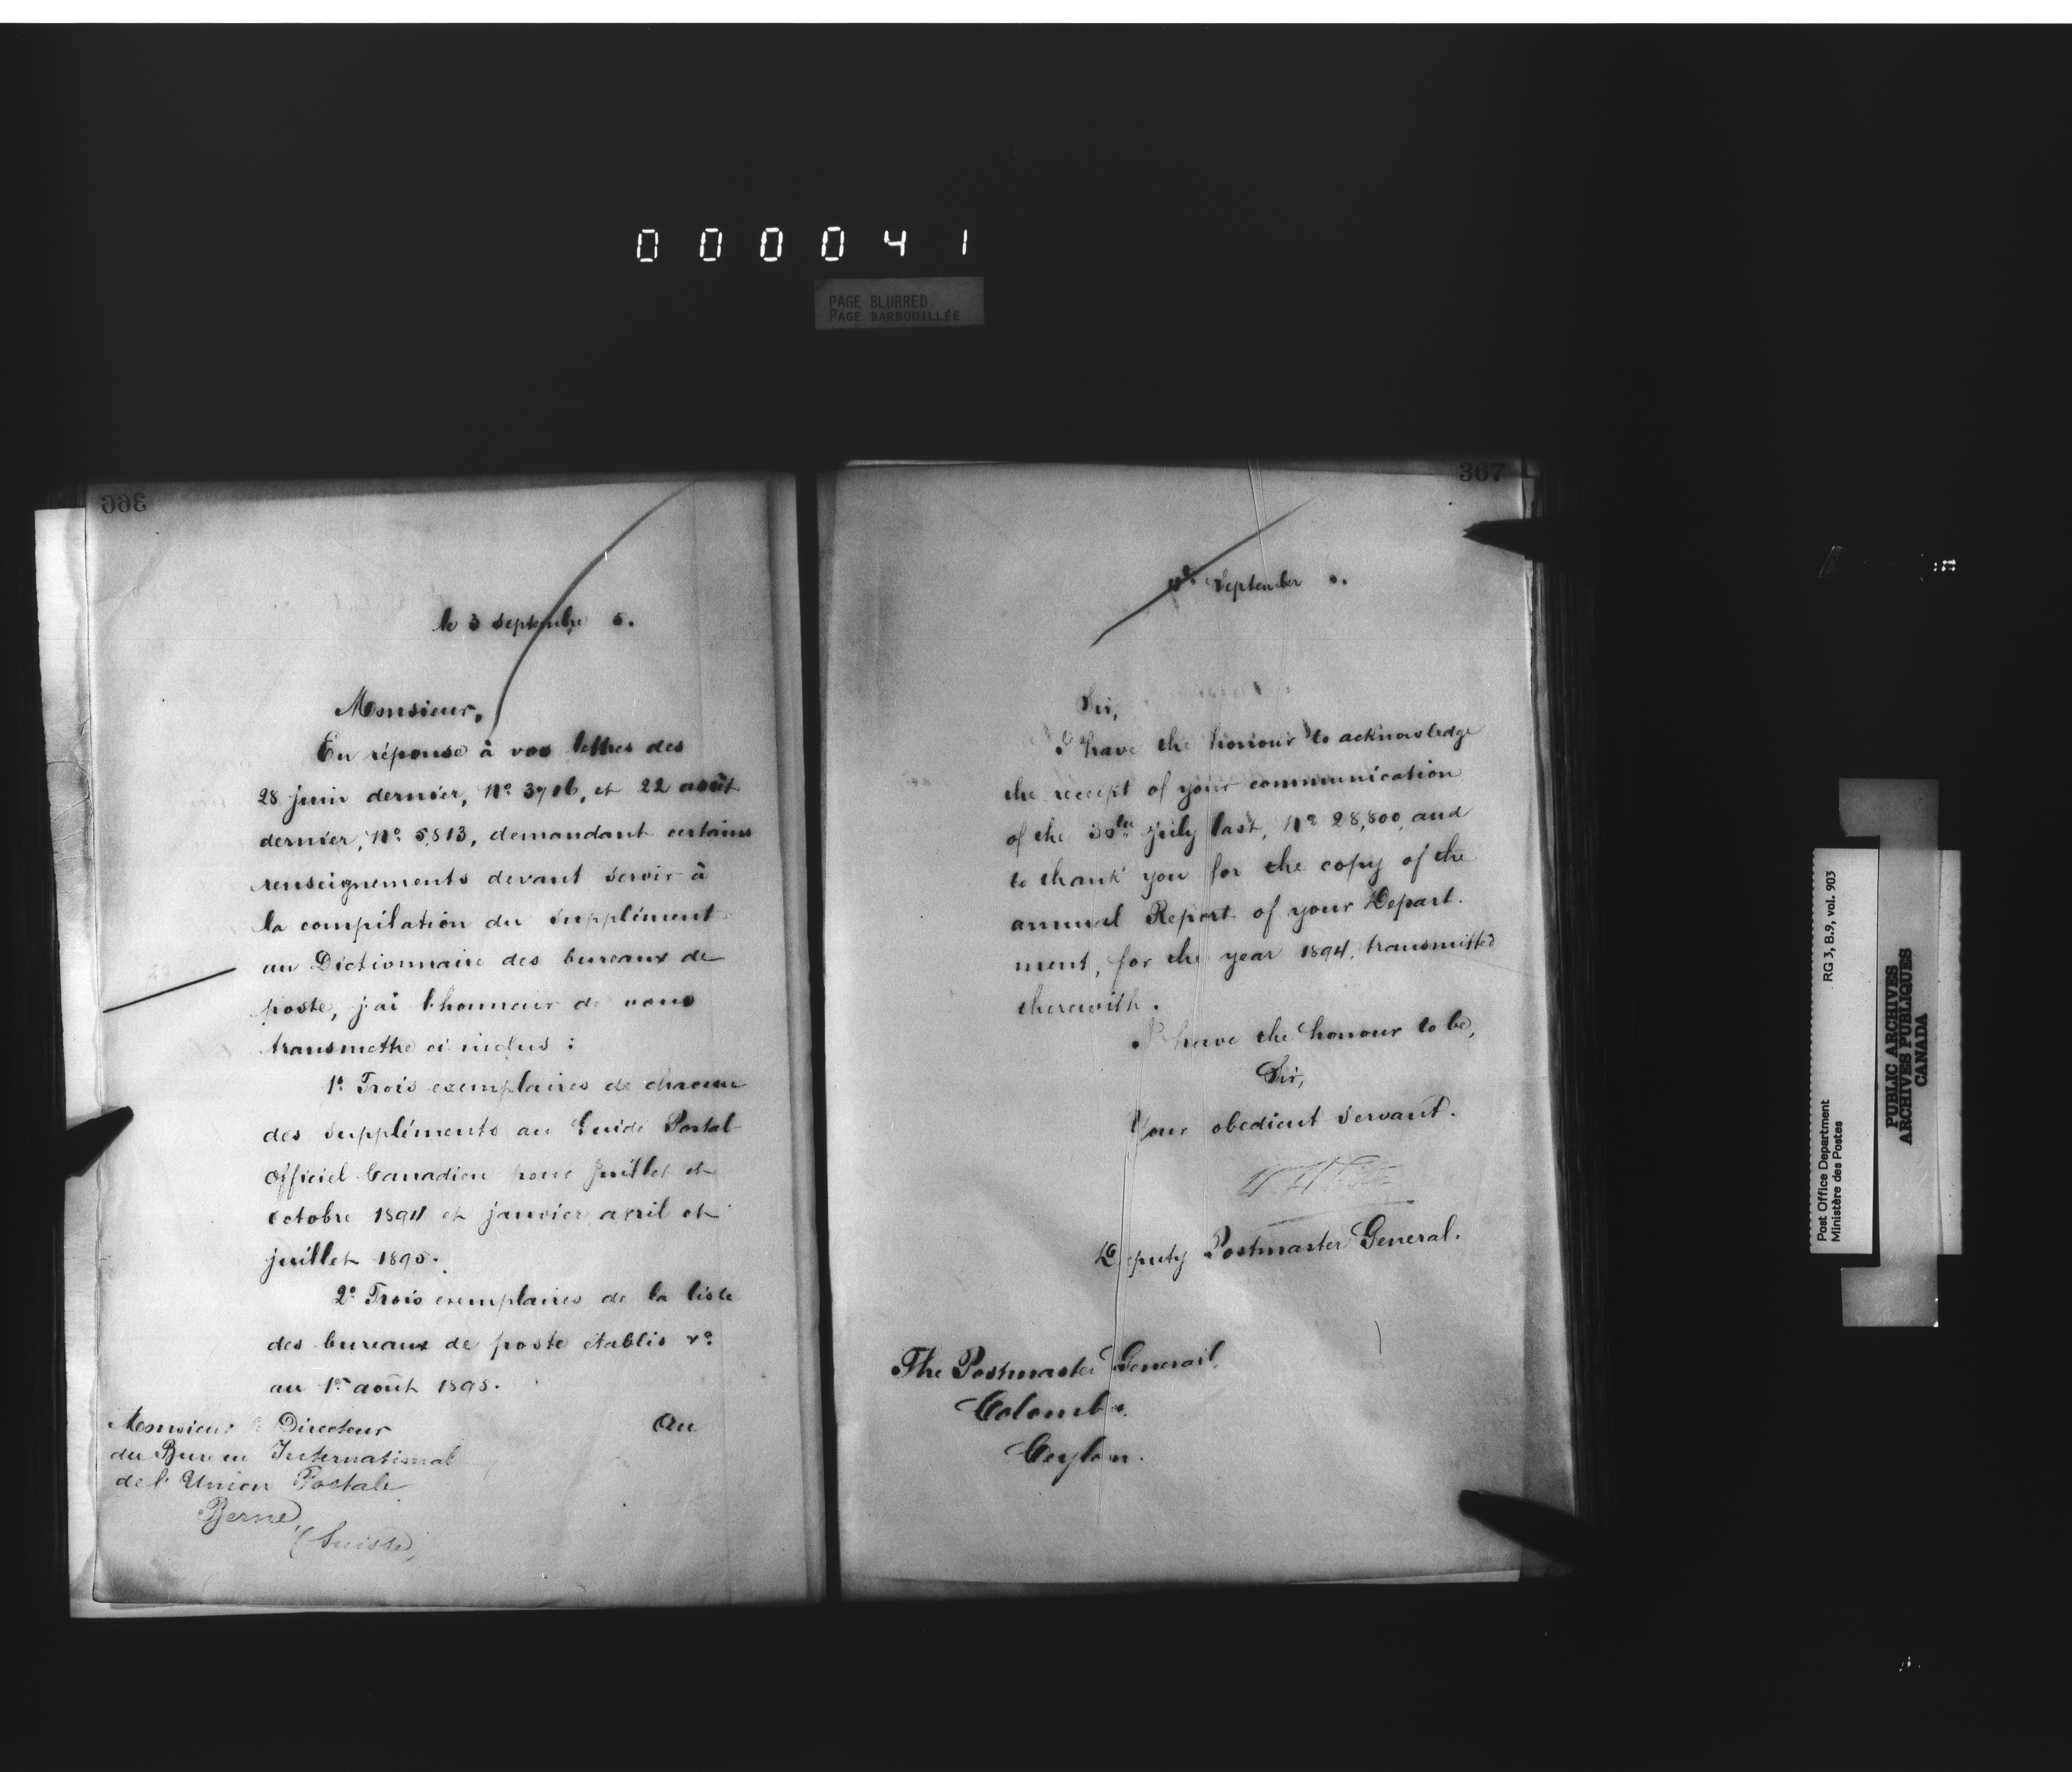 000041
PAGE BLURRED
PAGE BARBOUILLÉE
366
le 3 septembre 5.
Monsieur,
En réponse à vos lettres des
28 juin dernier, No. 3706, et 22 août
dernier, No. 5,813, demandant certains
renseignements devant servir à
la compilation du supplément
au Dictionnaire des bureaux de
poste, j'ai l'honneur de vous
transmettre ci inclus :
1o. Trois exemplaires de chacun
des suppléments au Guide Postal
Officiel Canadien pour juillet et
octobre 1894 et janvier avril et
juillet 1895.
2o. Trois exemplaires de la liste
des bureaux de poste établis
au 1er août 1895.
Au
Monsieur Directeur
du Bureau International
de l'Union Postale
Berne,
(Suisse)
367
September
Sir,
I have the honour to acknowledge
the receipt of your communication
of the 30th July last, No. 28,800, and
to thank you for the copy of the
annual Report of your Depart-
ment, for the year 1894, transmitted
therewith.
I have the honour to be,
Sir,
Your obedient servant.
Deputy Postmaster General.
The Postmaster General,
Colombo.
Ceylon.
Post Office Department
Ministère des Postes
RG 3, B.9, vol. 903
PUBLIC ARCHIVES
ARCHIVES PUBLIQUES
CANADA